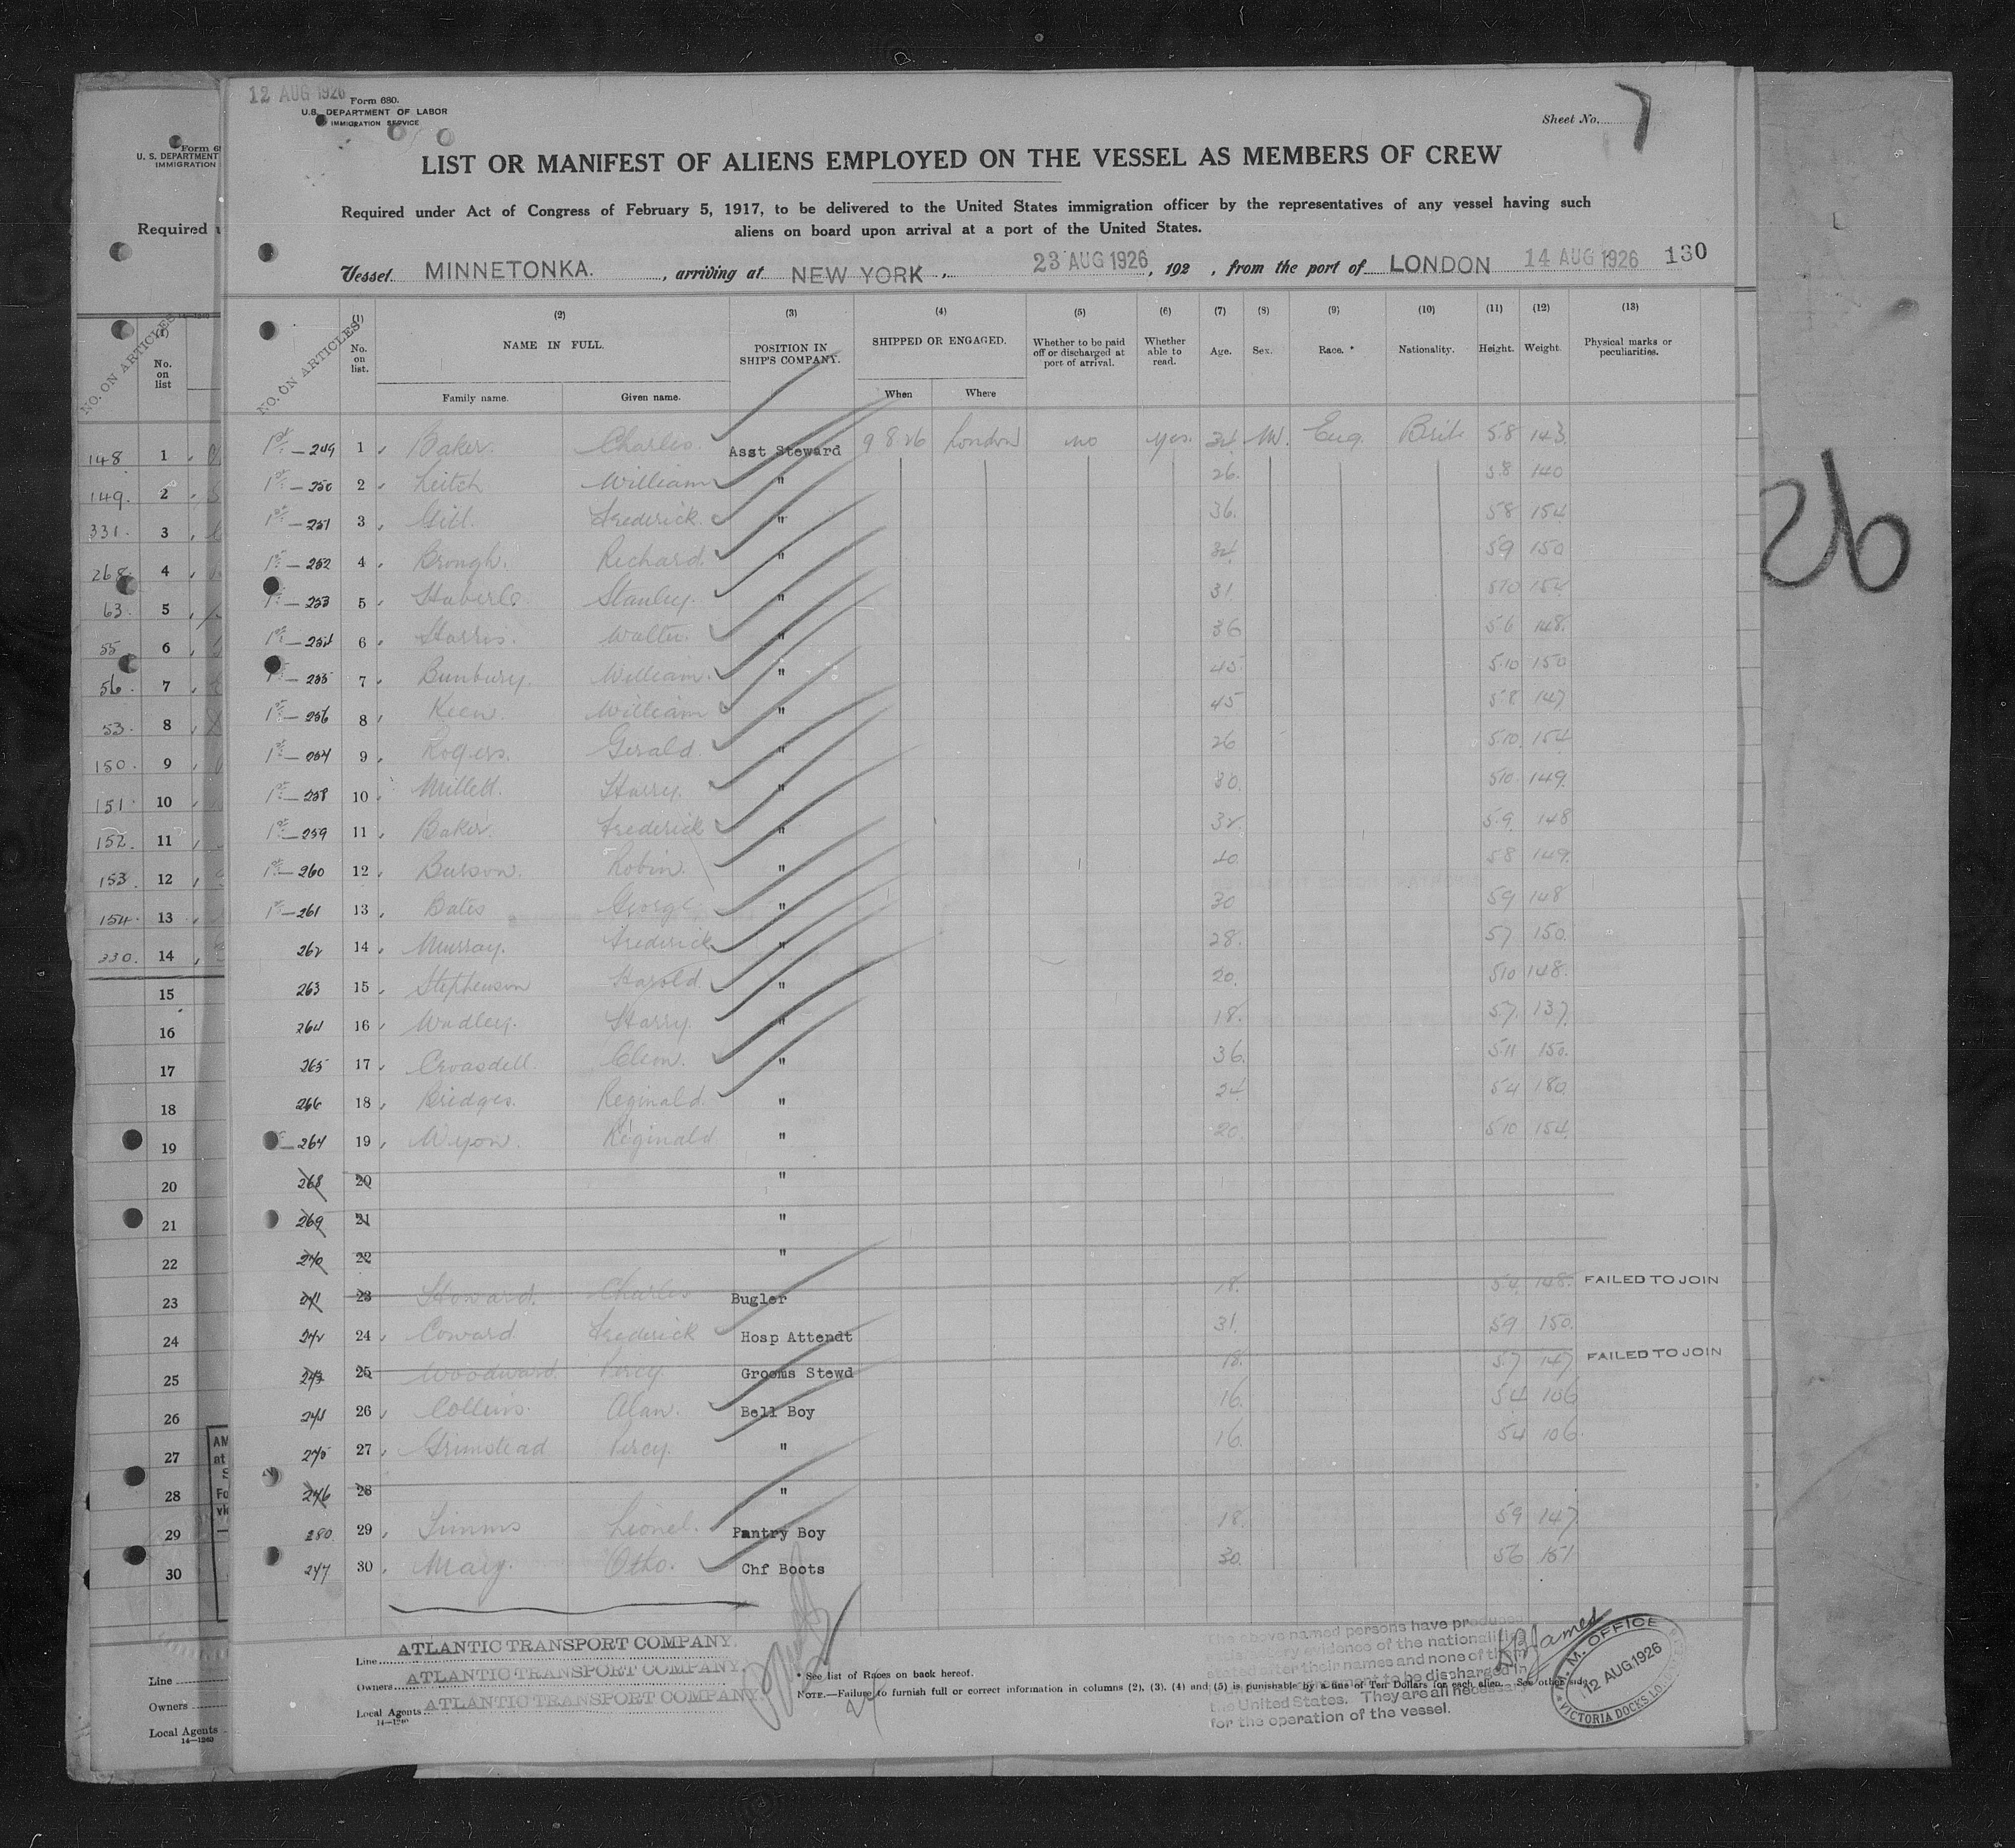 12 AUG 1926
Form 680.
U.S. DEPARTMENT OF LABOR
IMMIGRATION SERVICE
Sheet No. 7
LIST OR MANIFEST OF ALIENS EMPLOYED ON THE VESSEL AS MEMBERS OF CREW
Required under Act of Congress of February 5, 1917, to be delivered to the United States immigration officer by the representatives of any vessel having such
aliens on board upon arrival at a port of the United States.
Vessel MINNETONKA. , arriving at NEW YORK , 23 AUG 1926 , 192 , from the port of LONDON 14 AUG 1926 130
NO. ON ARTICLES
(1) (2) (3) (4) (5) (6) (7) (8) (9) (10) (11) (12) (13)
No. on list. NAME IN FULL. POSITION IN SHIP'S COMPANY. SHIPPED OR ENGAGED. Whether to be paid off or discharged at port of arrival. Whether able to read. Age. Sex. Race.* Nationality. Height. Weight. Physical marks or peculiarities.
Family name. Given name. When Where
249 1 Baker. Charles. Asst Steward 9 8 26 London no yes. 34 M. Eng. Brit 58 143.
250 2 Leitch William " 26. 58 140
251 3 Gill. Frederick. " 36. 58 154
252 4 Brough. Richard. " 34. 59 150
253 5 Stanley. " 31. 510 154
254 6 Harris. Walter. " 36 56 148.
255 7 Bunbury. William. " 45. 510 150
256 8 Keen. William " 45 58 147
257 9 Rogers. Gerald. " 26 510. 154
258 10 Millett. Harry. " 30. 510. 149.
259 11 Baker. Frederick " 32 5.9. 148
260 12 Burson. Robin. " 40. 58 149.
261 13 Bates George. " 30 59 148
262 14 Murray. Frederick " 28. 57 150.
263 15 Stephenson Harold. " 20. 510 148.
264 16 Wadley. Harry. " 18. 57. 137.
265 17 Croasdell. Cleon. " 36. 511 150.
266 18 Bridges. Reginald. " 24. 54 180.
267 19 Wyon. Reginald " 20. 510 154.
268 20 "
269 21 "
270 22 "
271 23 Howard. Charles Bugler 18. 54. 148. FAILED TO JOIN
272 24 Coward. Frederick Hosp Attendt 31. 59 150.
273 25 Woodward. Percy Grooms Stewd 18. 57 147 FAILED TO JOIN
274 26 Collins. Alan. Bell Boy 16. 54 106
275 27 Grimstead Percy. " 16. 54 106.
276 28 "
280 29 Simms Lionel. Pantry Boy 18. 59 147
277 30 Otho. Chf Boots 30. 56 151
Line ATLANTIC TRANSPORT COMPANY.
Owners ATLANTIC TRANSPORT COMPANY.
Local Agents ATLANTIC TRANSPORT COMPANY.
14—1240
* See list of Races on back hereof.
NOTE.—Failure to furnish full or correct information in columns (2), (3), (4) and (5) is punishable by a fine of Ten Dollars for each alien. See other side.
The above named persons have produced
satisfactory evidence of the nationalities
stated after their names and none of them
to be discharged in
the United States. They are all necessary
for the operation of the vessel.
M. M. OFFICE
12 AUG 1926
VICTORIA DOCKS
26
U. S. DEPARTMENT
IMMIGRATION
Required
NO. ON ARTICLES
No. on list
148 1
149. 2
331. 3
268. 4
63. 5
55 6
56. 7
53. 8
150. 9
151. 10
152. 11
153. 12
154. 13
330. 14
15
16
17
18
19
20
21
22
23
24
25
26
27
28
29
30
Line
Owners
Local Agents
14—1240